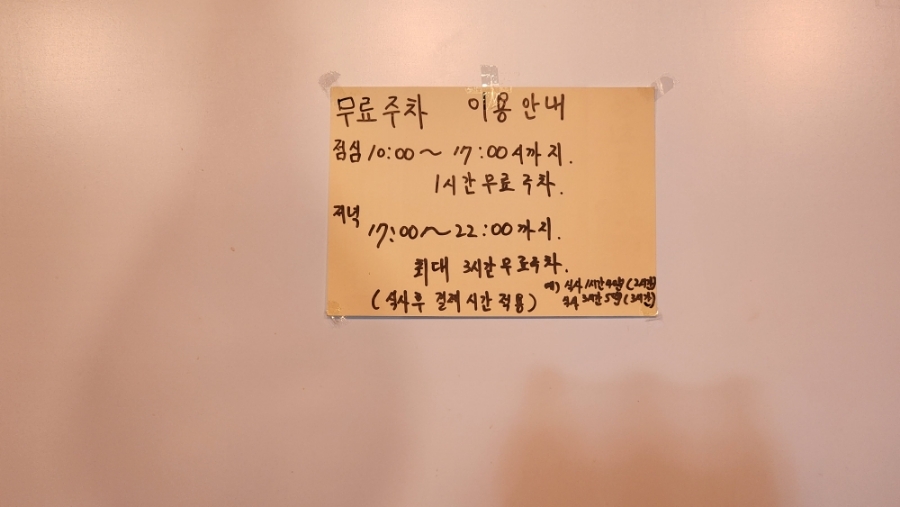 무료주차 이용안내
점심 10:00~17:00시까지.
1시간무료주차.
저녁 17:00~22:00까지.
최대 3시간무료주차.
(식사후 결제시간적용)
예) 식사 1시간 (2시간)
3시간 5분 (3시간)